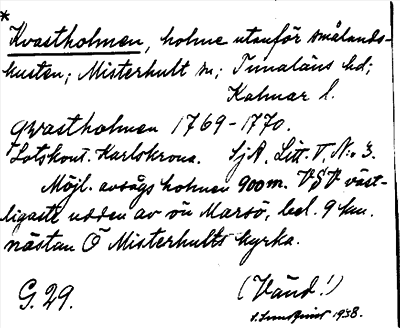 *
Kvastholmen, holme utanför smålands-
kusten; Misterhult sn; Tunaläns hd;
Kalmar l.
Qvastholmen 1769-1770.
Lotskont. Karlskrona. SjA. Litt. T. N:o 3.
Möjl. avsågs holmen 900 m. VSV väst-
ligaste udden av ön Marsö, bel. 9 km.
nästan Ö Misterhults kyrka.
(Vänd!)
G. 29.
1938.